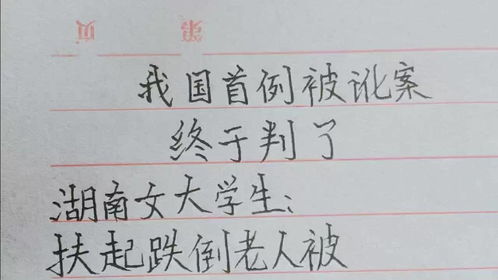 第 页
我国首例被讹案
终于判了
湖南女大学生：
扶起跌倒老人被